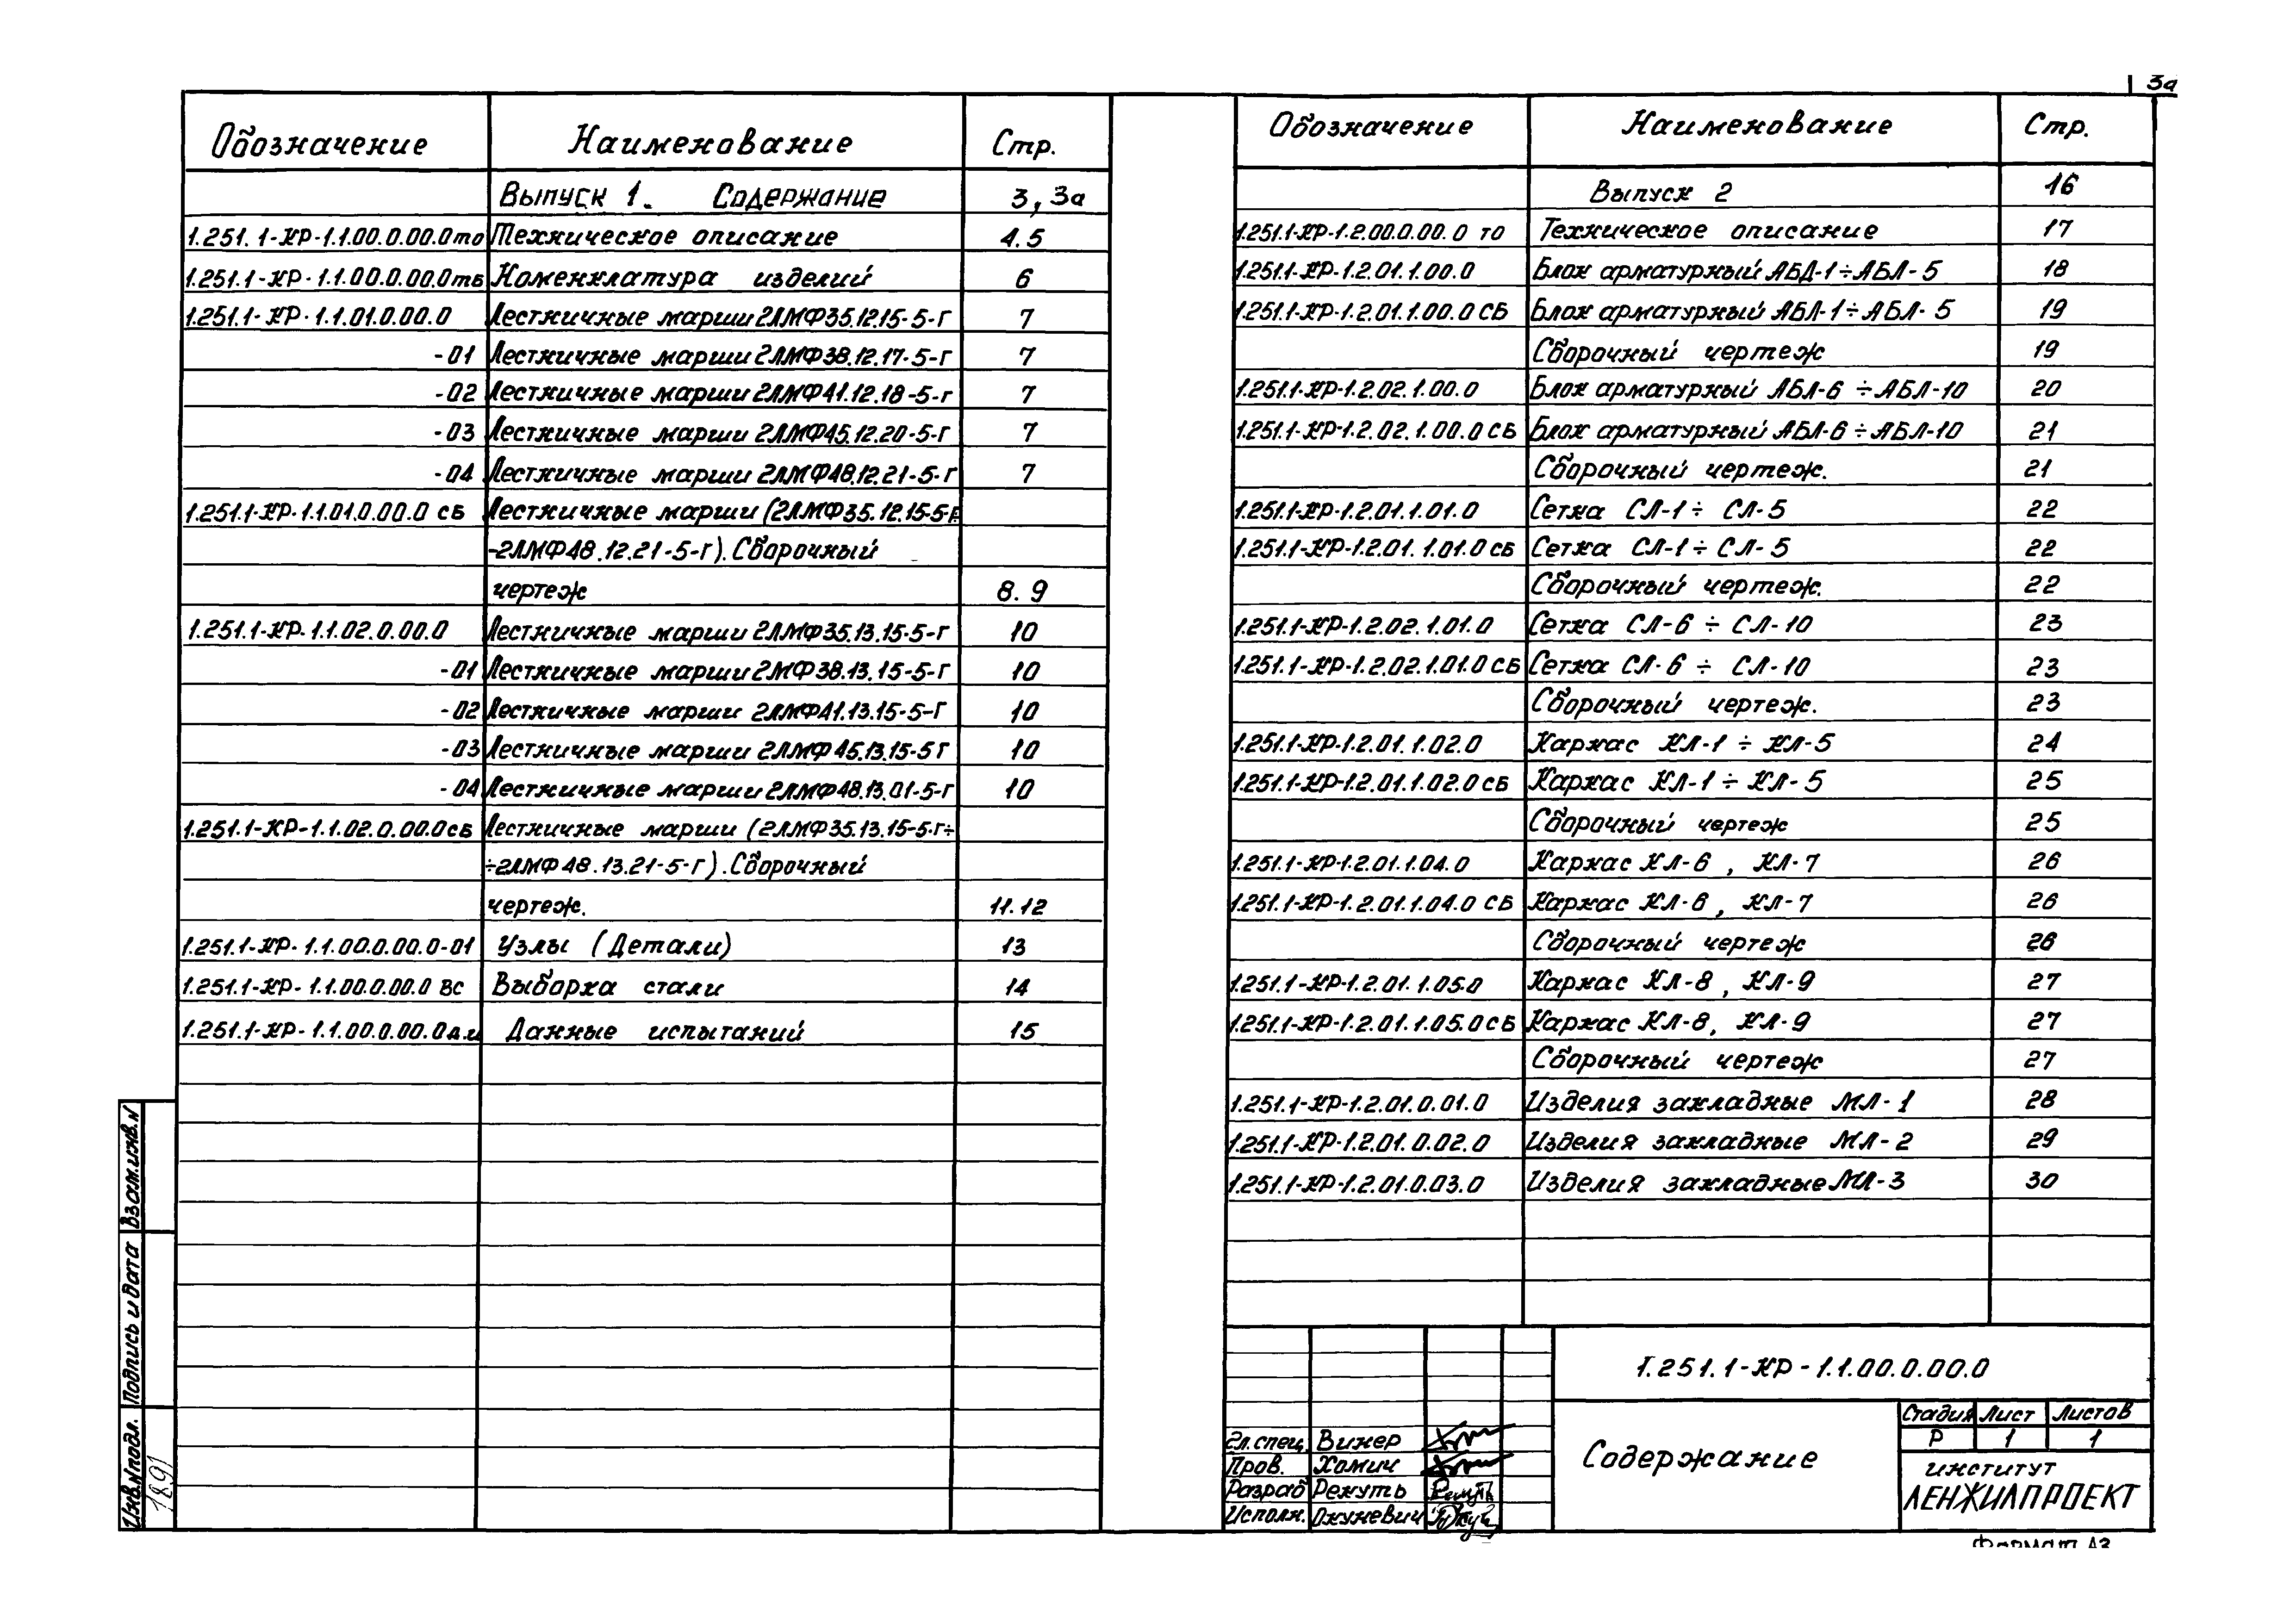 3а
Обозначение Наименование Стр.
Выпуск 1. Содержание 3, 3а
1.251.1-КР-1.1.00.0.00.0то Техническое описание 4.5
1.251.1-КР-1.1.00.0.00.0тб Номенклатура изделий 6
1.251.1-КР-1.1.01.0.00.0 Лестничные марши 2ЛМФ35.12.15-5-г 7
-01 Лестничные марши 2ЛМФ38.12.17-5-г 7
-02 Лестничные марши 2ЛМФ41.12.18-5-г 7
-03 Лестничные марши 2ЛМФ45.12.20-5-г 7
-04 Лестничные марши 2ЛМФ48.12.21-5-г 7
1.251.1-КР-1.1.01.0.00.0 сб Лестничные марши (2ЛМФ35.12.15-5-г
-2ЛМФ48.12.21-5-г). Сборочный
чертеж 8.9
1.251.1-КР-1.1.02.0.00.0 Лестничные марши 2ЛМФ35.13.15-5-г 10
-01 Лестничные марши 2МФ38.13.15-5-г 10
-02 Лестничные марши 2ЛМФ41.13.15-5-г 10
-03 Лестничные марши 2ЛМФ45.13.15-5г 10
-04 Лестничные марши 2ЛМФ48.13.01-5-г 10
1.251.1-КР-1.1.02.0.00.0сб Лестничные марши (2ЛМФ35.13.15-5-г÷
÷2ЛМФ48.13.21-5-г). Сборочный
чертеж. 11.12
1.251.1-КР-1.1.00.0.00.0-01 Узлы (Детали) 13
1.251.1-КР-1.1.00.0.00.0 ВС Выборка стали 14
1.251.1-КР-1.1.00.0.00.0д.и Данные испытаний 15
Обозначение Наименование Стр.
Выпуск 2 16
1.251.1-КР-1.2.00.0.00.0 ТО Техническое описание 17
1.251.1-КР-1.2.01.1.00.0 Блок арматурный АБД-1÷АБЛ-5 18
1.251.1-КР-1.2.01.1.00.0 СБ Блок арматурный АБЛ-1÷АБЛ-5 19
Сборочный чертеж 19
1.251.1-КР-1.2.02.1.00.0 Блок арматурный АБЛ-6÷АБЛ-10 20
1.251.1-КР-1.2.02.1.00.0 СБ Блок арматурный АБЛ-6÷АБЛ-10 21
Сборочный чертеж. 21
1.251.1-КР-1.2.01.1.01.0 Сетка СЛ-1÷ СЛ-5 22
1.251.1-КР-1.2.01.1.01.0 сб Сетка СЛ-1÷ СЛ-5 22
Сборочный чертеж. 22
1.251.1-КР-1.2.02.1.01.0 Сетка СЛ-6 ÷ СЛ-10 23
1.251.1-КР-1.2.02.1.01.0 СБ Сетка СЛ-6 ÷ СЛ-10 23
Сборочный чертеж. 23
1.251.1-КР-1.2.01.1.02.0 Каркас КЛ-1 ÷ КЛ-5 24
1.251.1-КР-1.2.01.1.02.0 сб Каркас КЛ-1÷ КЛ-5 25
Сборочный чертеж 25
1.251.1-КР-1.2.01.1.04.0 Каркас КЛ-6, КЛ-7 26
1.251.1-КР-1.2.01.1.04.0 СБ Каркас КЛ-6, КЛ-7 26
Сборочный чертеж 26
1.251.1-КР-1.2.01.1.05.0 Каркас КЛ-8, КЛ-9 27
1.251.1-КР-1.2.01.1.05.0 СБ Каркас КЛ-8, КЛ-9 27
Сборочный чертеж 27
1.251.1-КР-1.2.01.0.01.0 Изделия закладные МЛ-1 28
1.251.1-КР-1.2.01.0.02.0 Изделия закладные МЛ-2 29
1.251.1-КР-1.2.01.0.03.0 Изделия закладные МЛ-3 30
Взам.инв.N
Подпись и дата
Инв.Nподл.
1891
1.251.1-КР-1.1.00.0.00.0
Гл.спец. Винер
Пров. Хомич
Разраб Рекуть
Исполн. Окуневич
Содержание
Стадия Лист Листов
Р 1 1
институт
ЛЕНЖИЛПРОЕКТ
Формат А3